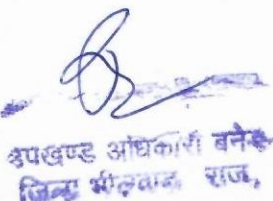 उपखण्ड अधिकारी बनेड़ा
जिला भीलवाड़ा राज,